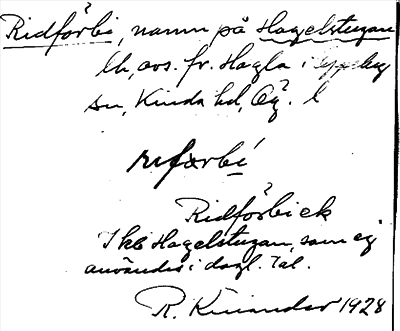 Ridförbi, namn på Hagelstugan
lh, avs. fr. Hagla i
sn, Kinda hd, Ög. l
rifœrbí
Ridförbi ek
Hagelstugan, som ej
användes i dagl. tal.
R. Kinander 1928